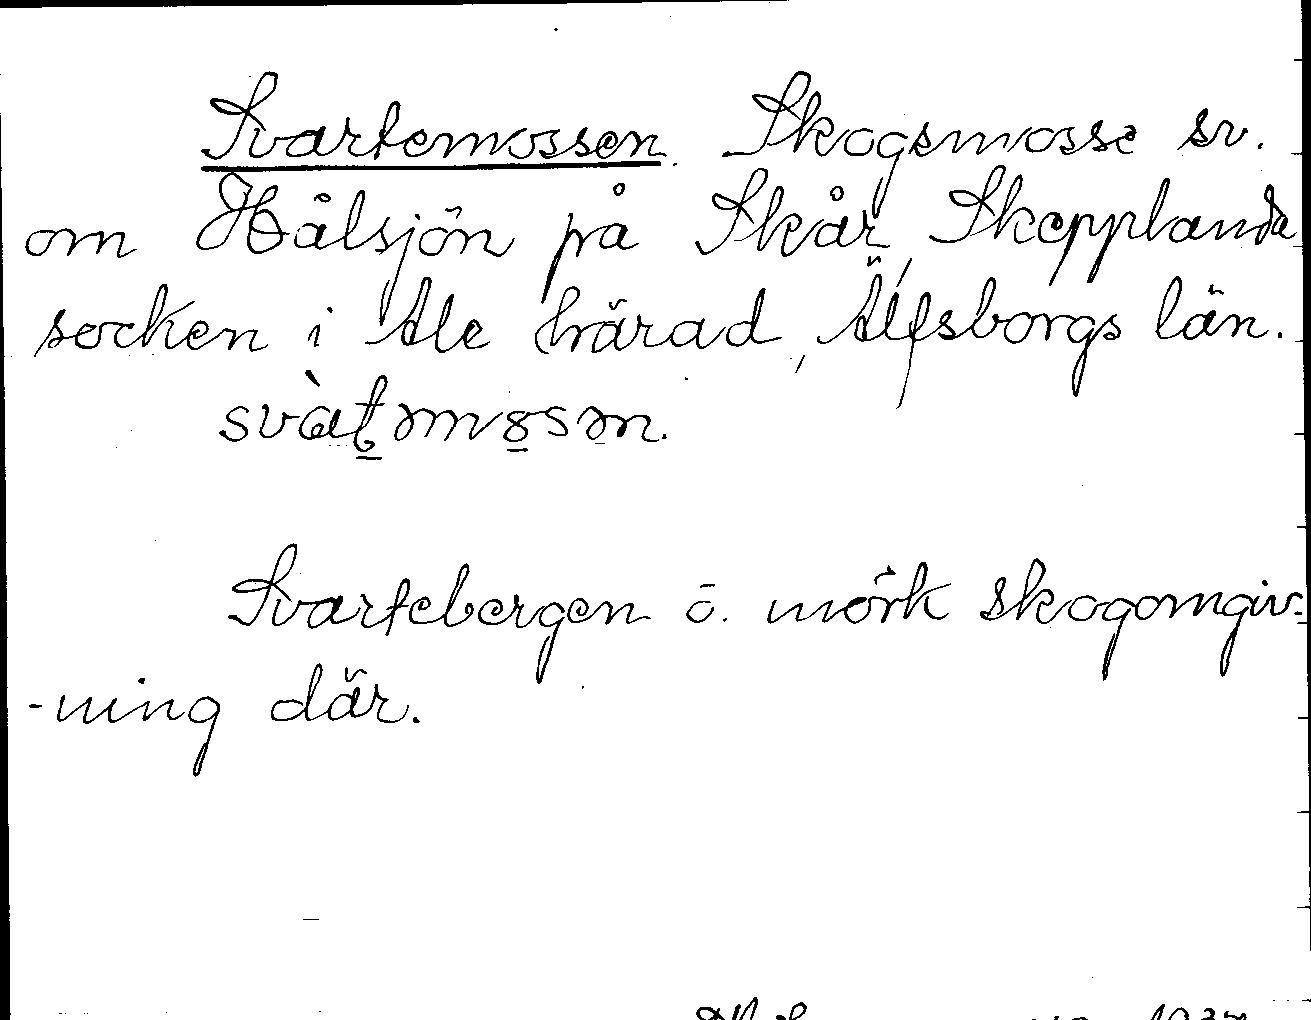 Svartemossen. Skogsmosse sv.
om Hålsjön på Skår, Skepplanda
socken i Ale härad, Älfsborgs län.
Svartebergen o. mörk skogomgiv-
-ning där.